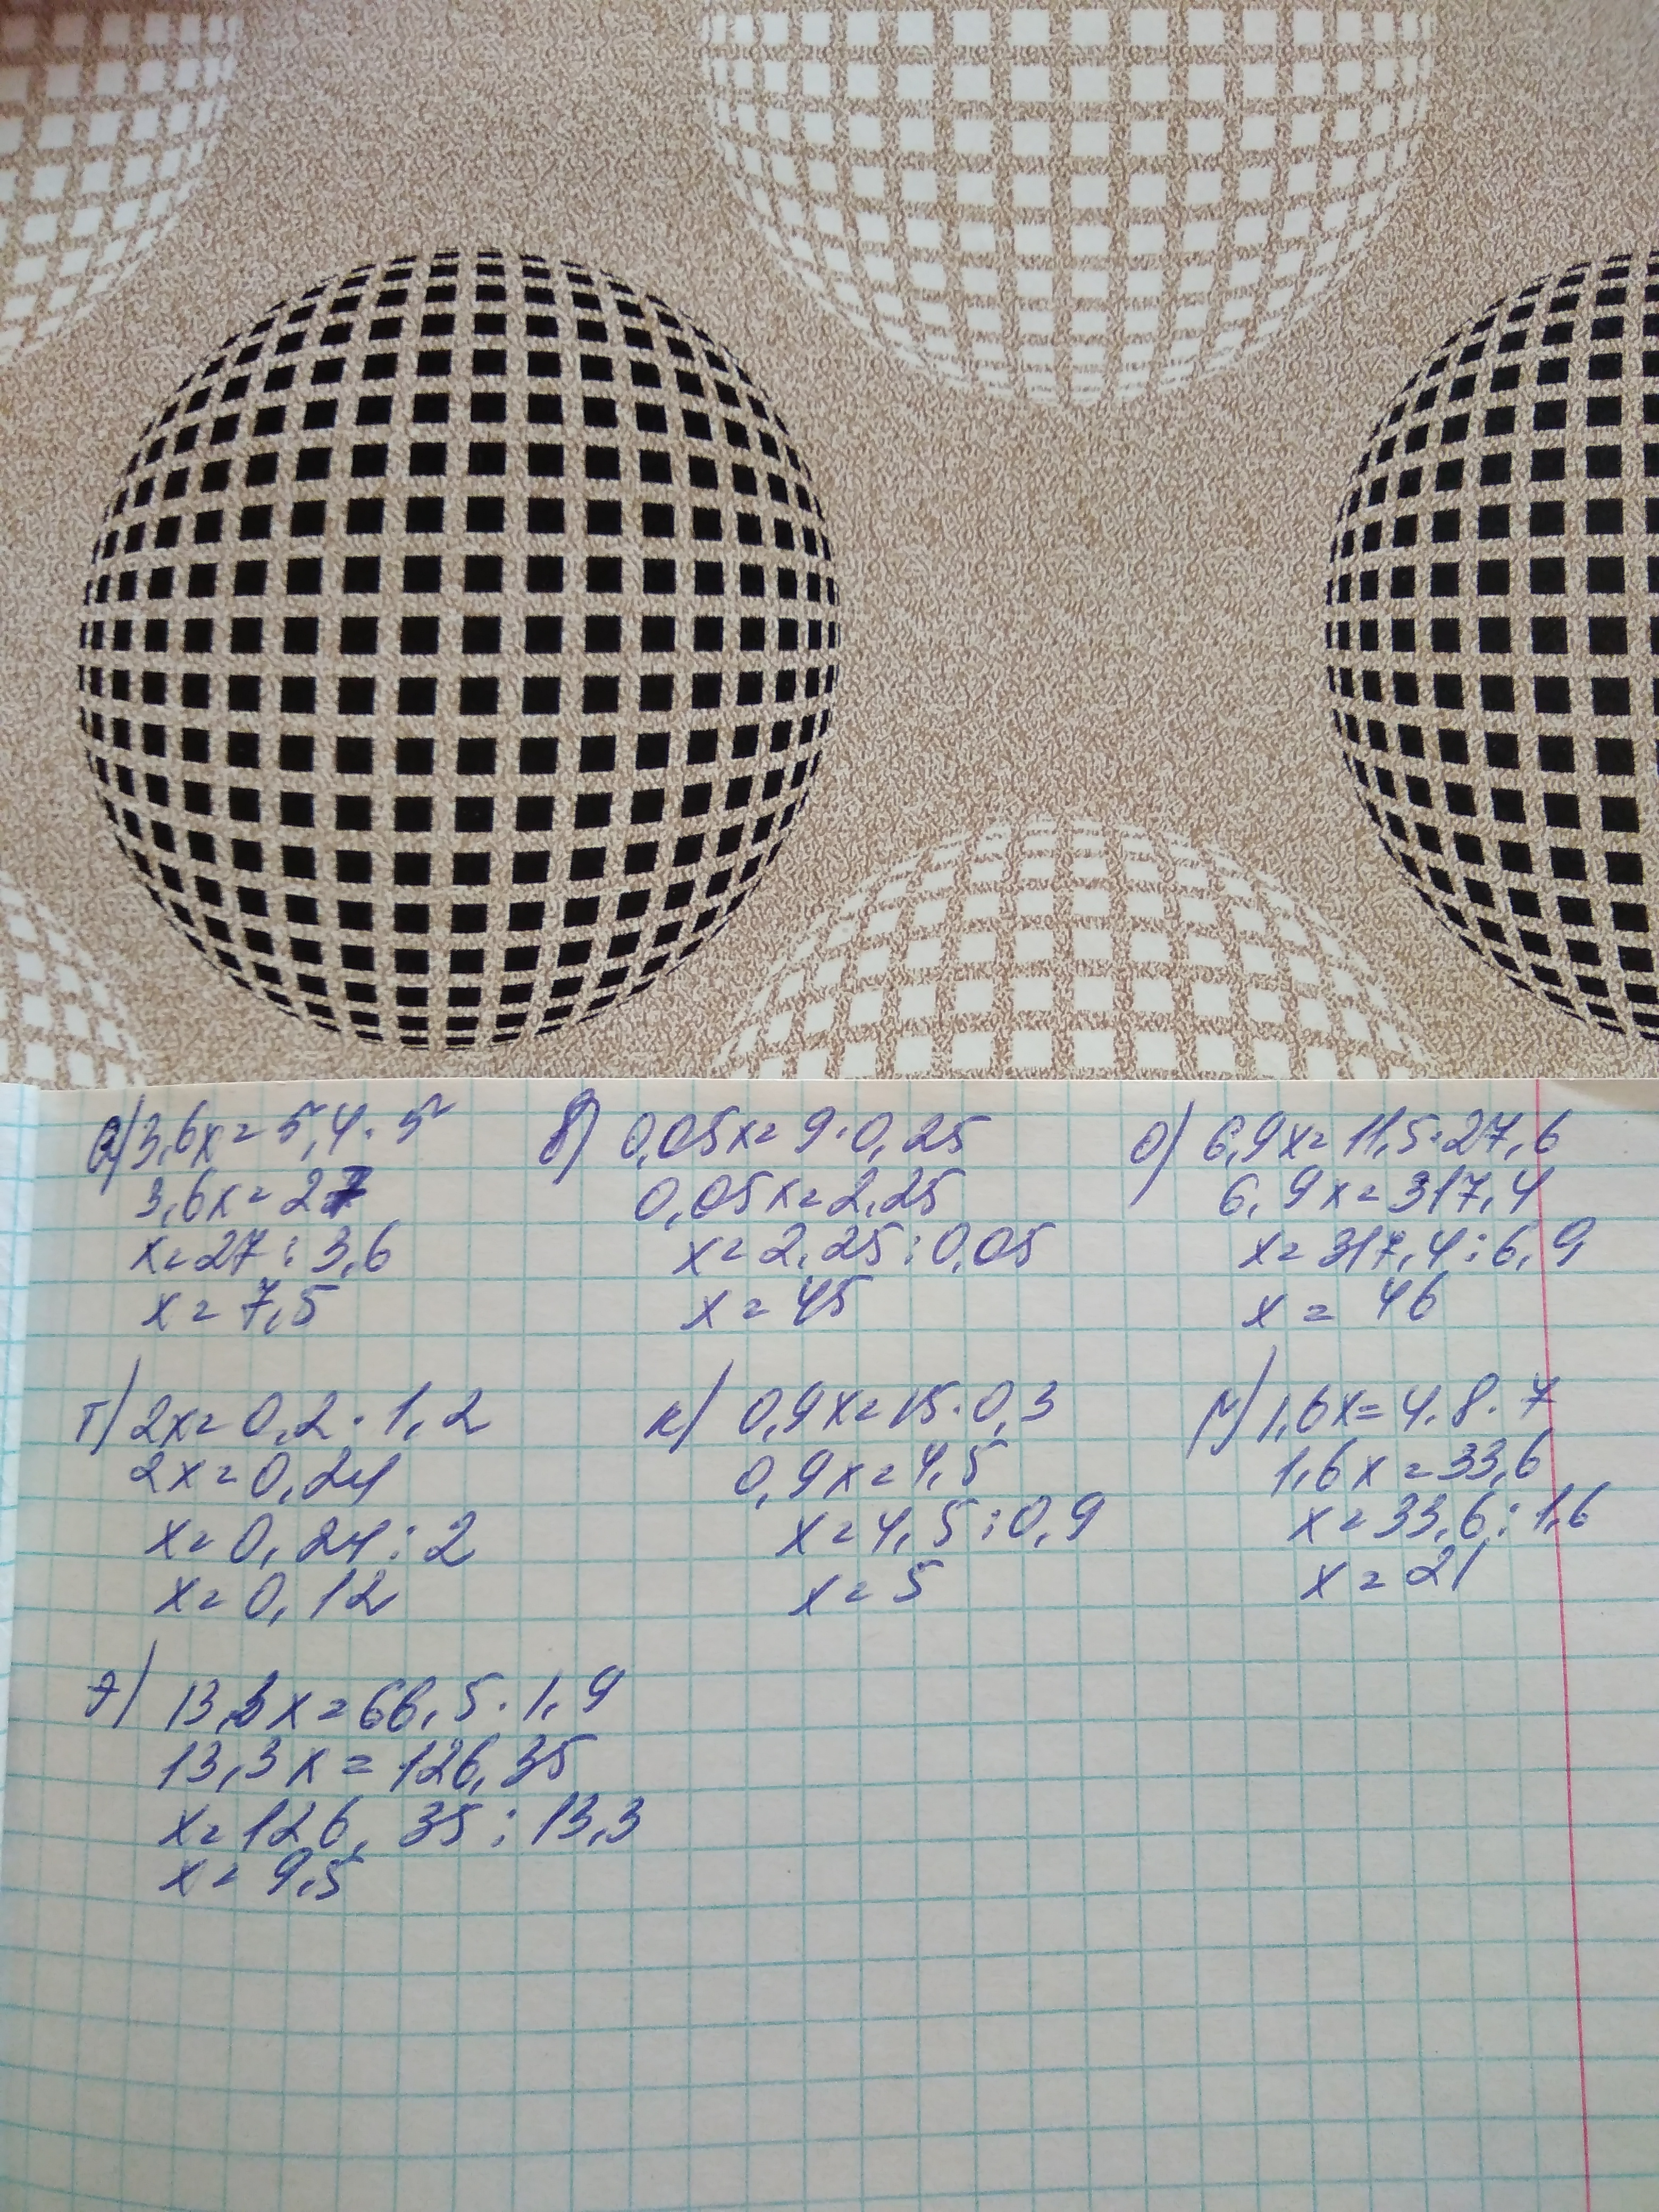 а) 3,6x = 5,4 · 5
3,6x = 27
x = 27 : 3,6
x = 7,5
б) 0,05x = 9 · 0,25
0,05x = 2,25
x = 2,25 : 0,05
x = 45
о) 6,9x = 11,5 · 27,6
6,9x = 317,4
x = 317,4 : 6,9
x = 46
т) 2x = 0,2 · 1,2
2x = 0,24
x = 0,24 : 2
x = 0,12
к) 0,9x = 15 · 0,3
0,9x = 4,5
x = 4,5 : 0,9
x = 5
м) 1,6x = 4.8 · 7
1,6x = 33,6
x = 33,6 : 1,6
x = 21
э) 13,3x = 66,5 · 1,9
13,3x = 126,35
x = 126,35 : 13,3
x = 9,5